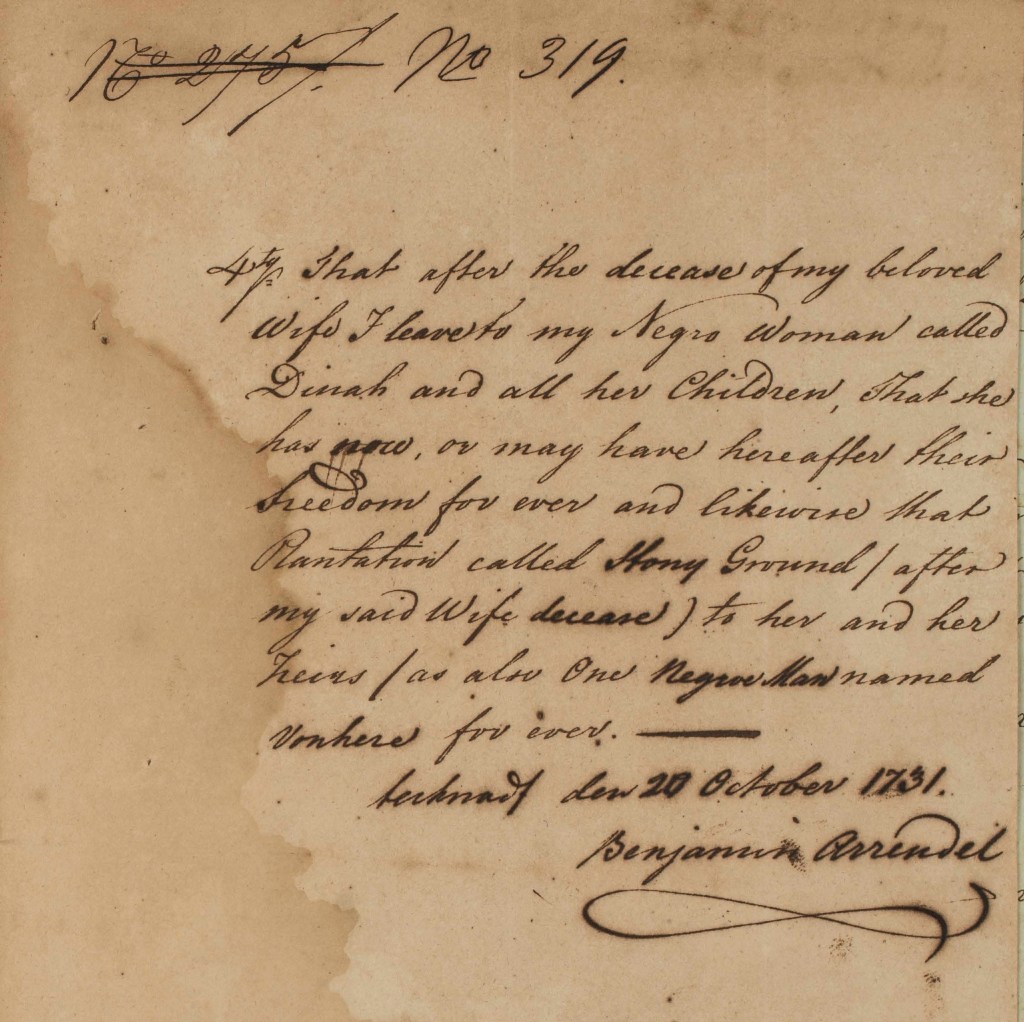 No 275. No 319.
4ty. That after the decease of my beloved
Wife I leave to my Negro Woman called
Dinah and all her Children, That she
has now, or may have hereafter their
freedom for ever and likewise that
Plantation called Stony Ground / after
my said Wife decease ) to her and her
heirs / as also One Negroe Man named
Vonhere for ever.
den 20 October 1731.
Benjamin Arrendel